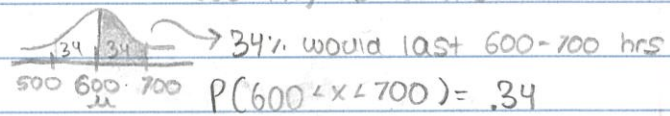 34 34 → 34% would last 600-700 hrs
500 600 700
μ P(600<x<700)= .34